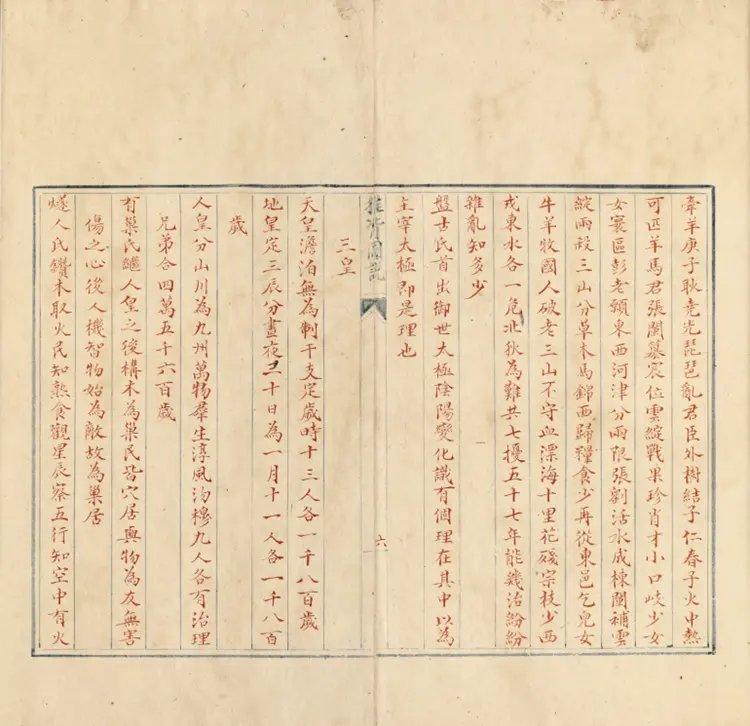 牽羊庚子耿堯光琵琶亂君臣外樹結子仁春子火中熱
可匹羊馬君張闌墓宸位雲綻戰果珍肖才小口岐少女
女寰區彭老頸東西河津分兩限張劉活水成棟闌補雲
綻兩殺三山分草木馬錦西歸糧食少再從東邑乞兒女
牛羊牧國人破老三山不守血漂海十里花殘宗枝少西
戎東水各一危北狄為難共七擾五十七年能幾治紛紛
雜亂知多少
盤古氏首出御世太極陰陽變化識有個理在其中以為
主宰太極即是理也
三皇
天皇澹泊無為制干支定歲時十三人各一千八百歲
地皇定三辰分晝夜三十日為一月十一人各一千八百
歲
人皇分山川為九州萬物羣生淳風沕穆九人各有治理
兄弟合四萬五千六百歲
有巢氏繼人皇之後構木為巢民皆穴居與物為友無害
傷之心後人機智物始為敵故為巢居
燧人氏鑽木取火民知熟食觀星辰察五行知空中有火
推背圖說
六